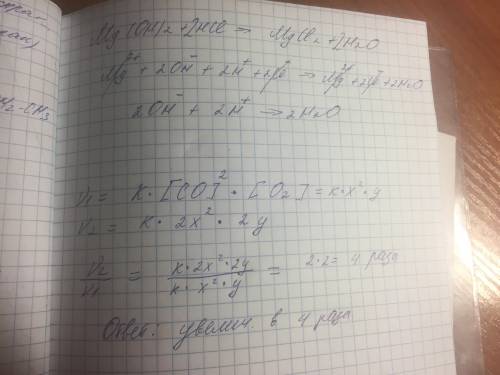 Mg(OH)2 + 2HCl => MgCl2 + 2H2O
Mg²⁺ + 2OH⁻ + 2H⁺ + 2Cl⁻ => Mg²⁺ + 2Cl⁻ + 2H2O
2OH⁻ + 2H⁺ => 2H2O
H2-CH3
V1 = K · [CO]² · [O2] = K · x² · y
V2 = K · 2x² · 2y
V2/V1 = K · 2x² · 2y / K · x² · y = 2·2 = 4 раза
Ответ: увелич. в 4 раза